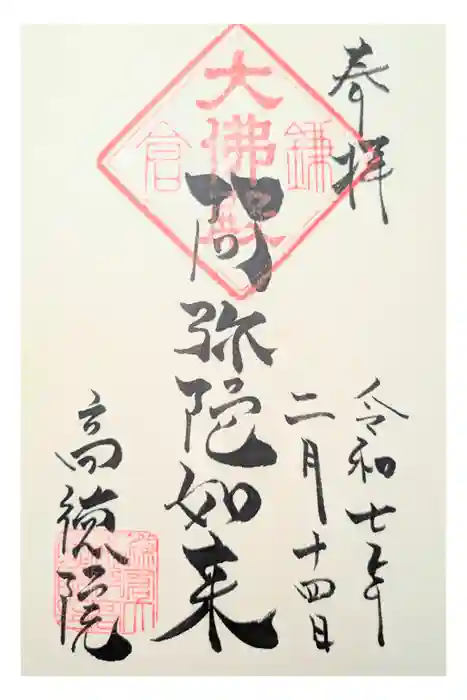 奉拝
令和七年
二月十四日
大佛殿
鎌倉
阿弥陀如来
高徳院